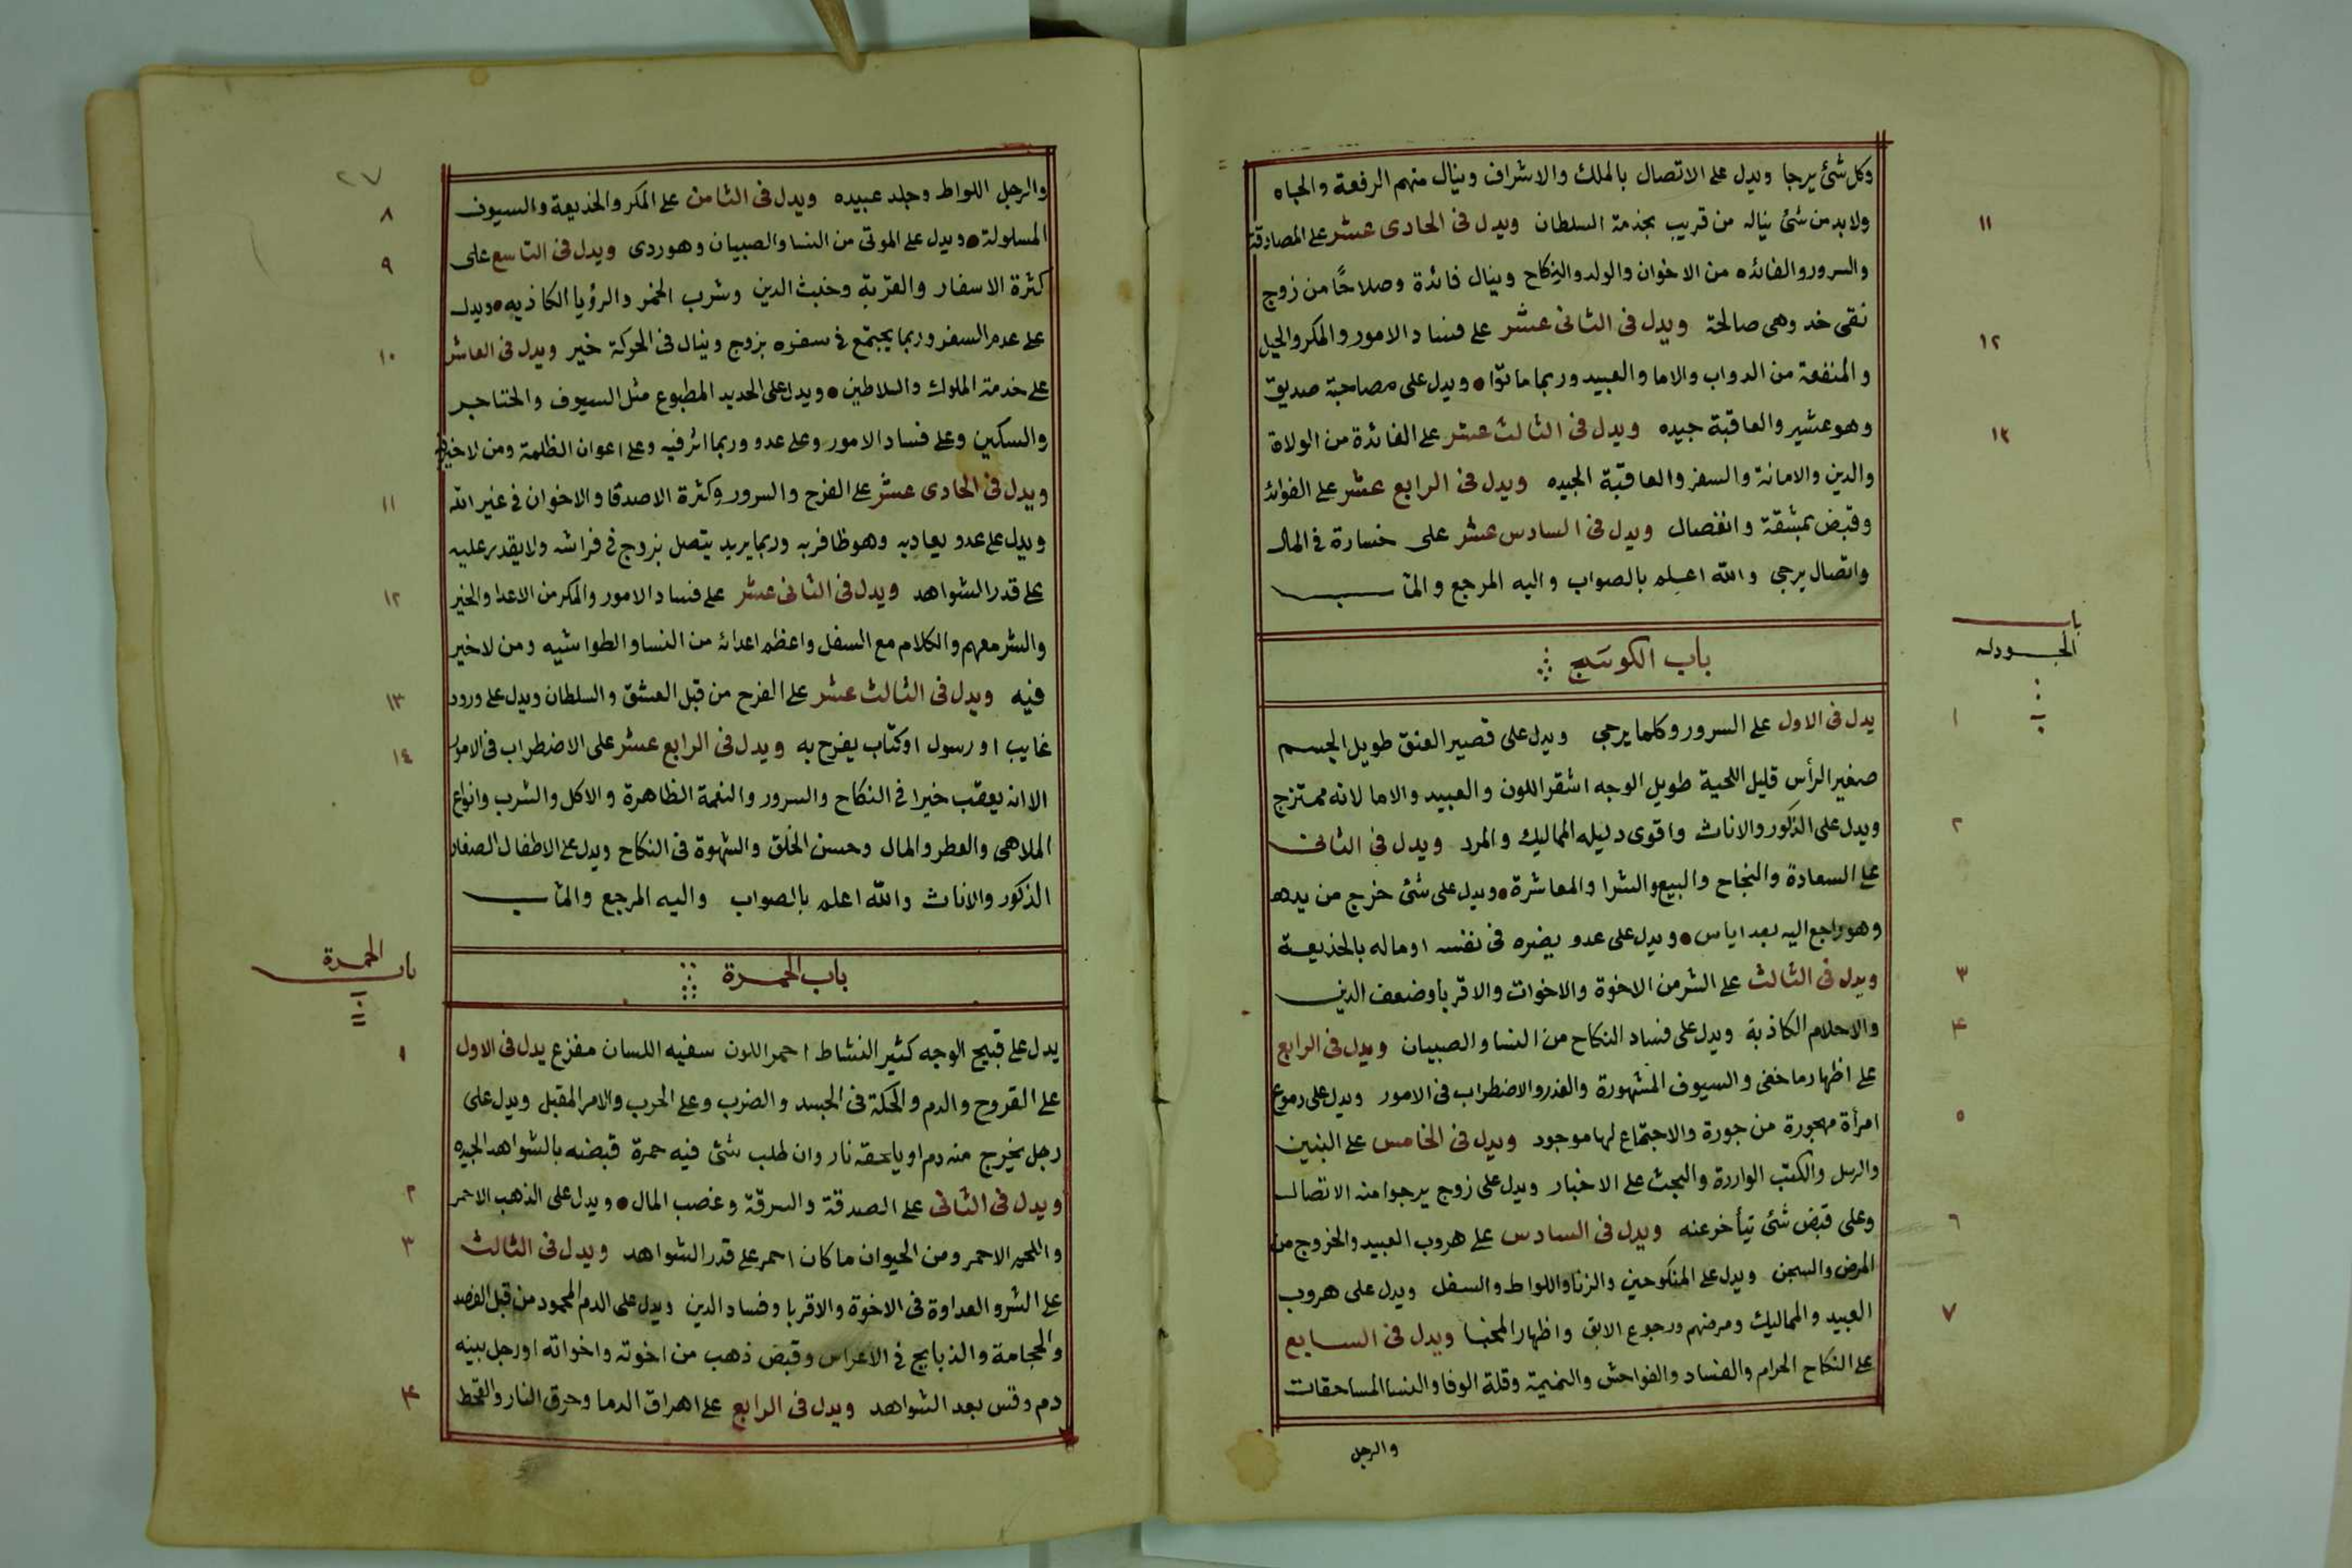 وكل شئ يرجا ويدل على الاتصال بالملك والاشراف وينال منهم الرفعة والجاه
ولابد من شئ يناله من قريب بخدمة السلطان ويدل فى الحادى عشر على المصادقة
١١
والسرور والفائده من الاخوان والولد والنكاح وينال فائدة وصلاحًا من زوج
نقى خد وهى صالحة ويدل فى الثانى عشر على فساد الامور والمكر والحيل
١٢
والمنفعة من الدواب والاما والعبيد وربما ماتوا • ويدل على مصاحبة صديق
وهو عشير والعاقبة جيده ويدل فى الثالث عشر على الفائدة من الولاة
١٣
والدين والامانة والسفر والعاقبة الجيده ويدل فى الرابع عشر على الفوائد
وقبض بمشقة وانفصال ويدل فى السادس عشر على خسارة فى المال
واتصال يرجى والله اعلم بالصواب واليه المرجع والمآب
باب الكوسج
باب
الجودله
يدل فى الاول على السرور وكلما يرجى ويدل على قصير العنق طويل الجسم
١
صغير الرأس قليل اللحية طويل الوجه اشقر اللون والعبيد والاما لانه ممتزج
ويدل على الذكور والاناث واقوى دليله المماليك والمرد ويدل فى الثانى
٢
على السعادة والنجاح والبيع والشرا والمعاشرة • ويدل على شئ خرج من يده
وهو راجع اليه بعد اياس • ويدل على عدو يضره فى نفسه او ماله بالخديعة
ويدل فى الثالث على الشر من الاخوة والاخوات والاقربا وضعف الدين
٣
والاحلام الكاذبة ويدل على فساد النكاح من النسا والصبيان ويدل فى الرابع
۴
على اظهار ما خفى والسيوف المشهورة والغدر والاضطراب فى الامور ويدل على دموع
امرأة مهجورة من جورة والاجتماع لها موجود ويدل فى الخامس على البنين
٥
والرسل والكتب الواردة والبحث على الاخبار ويدل على زوج يرجوا منه الاتصال
وعلى قبض شئ تيأخر عنه ويدل فى السادس على هروب العبيد والخروج من
٦
المرض والسجن ويدل على المنكوحين والزنا واللواط والسفل ويدل على هروب
العبيد والمماليك ومرضهم ورجوع الابق واظهار المخبا ويدل فى السابع
٧
على النكاح الحرام والفساد والفواحش والنميمة وقلة الوفا والنسا المساحقات
والرجل
٢٧
والرجل اللواط وجلد عبيده ويدل فى الثامن على المكر والخديعة والسيوف
٨
المسلولة • ويدل على الموتى من النسا والصبيان وهو ردى ويدل فى التاسع على
٩
كثرة الاسفار والغربة وخبث الدين وشرب الخمر والرؤيا الكاذبه • ويدل
على عدم السفر وربما يجتمع فى سفره بزوج وينال فى الحركة خير ويدل فى العاشر
١٠
على خدمة الملوك والسلاطين • ويدل على الحديد المطبوع مثل السيوف والخناجر
والسكين وعلى فساد الامور وعلى عدو وربما اثر فيه وعلى اعوان الظلمة ومن لا خير فيه
ويدل فى الحادى عشر على الفرح والسرور وكثرة الاصدقا والاخوان فى غير الله
١١
ويدل على عدو يعاديه وهو ظافر به وربما يريد يتصل بزوج فى فراشه ولا يقدر عليه
على قدر الشواهد ويدل فى الثانى عشر على فساد الامور والمكر من الاعدا والخير
١٢
والشر معهم والكلام مع السفل واعظم اعدائه من النسا والطواشيه ومن لا خير
فيه ويدل فى الثالث عشر على الفرح من قبل العشق والسلطان ويدل على ورود
١٣
غايب او رسول او كتاب يفرح به ويدل فى الرابع عشر على الاضطراب فى الامور
١٤
الا انه يعقب خيرا فى النكاح والسرور والنعمة الظاهرة والاكل والشرب وانواع
الملاهى والعطر والمال وحسن الخلق والشهوة فى النكاح ويدل على الاطفال الصغار
الذكور والاناث والله اعلم بالصواب واليه المرجع والمآب
باب الحمرة
باب
الحمرة
يدل على قبيح الوجه كثير النشاط احمر اللون سفيه اللسان مفزع يدل فى الاول
١
على القروح والدم والحكة فى الجسد والضرب وعلى الحرب والامر المقبل ويدل على
رجل يخرج منه دم او يلحقه نار وان طلب شئ فيه حمرة قبضه بالشواهد الجيده
ويدل فى الثانى على الصدقة والسرقة وغصب المال • ويدل على الذهب الاحمر
٢
واللحم الاحمر ومن الحيوان ما كان احمر على قدر الشواهد ويدل فى الثالث
٣
على الشر والعداوة فى الاخوة والاقربا وفساد الدين ويدل على الدم المحمود من قبل الفصد
والحجامة والذبايح فى الاعراس وقبض ذهب من اخوته واخواته او رجل بينه
دم وقس بعد الشواهد ويدل فى الرابع على اهراق الدما وحرق النار والقحط
۴